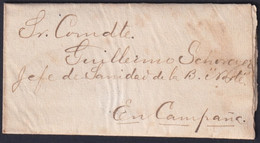 Sr. Comdte.
Guillermo
Jefe de Sanidad de la B. Norte
En Campaña.